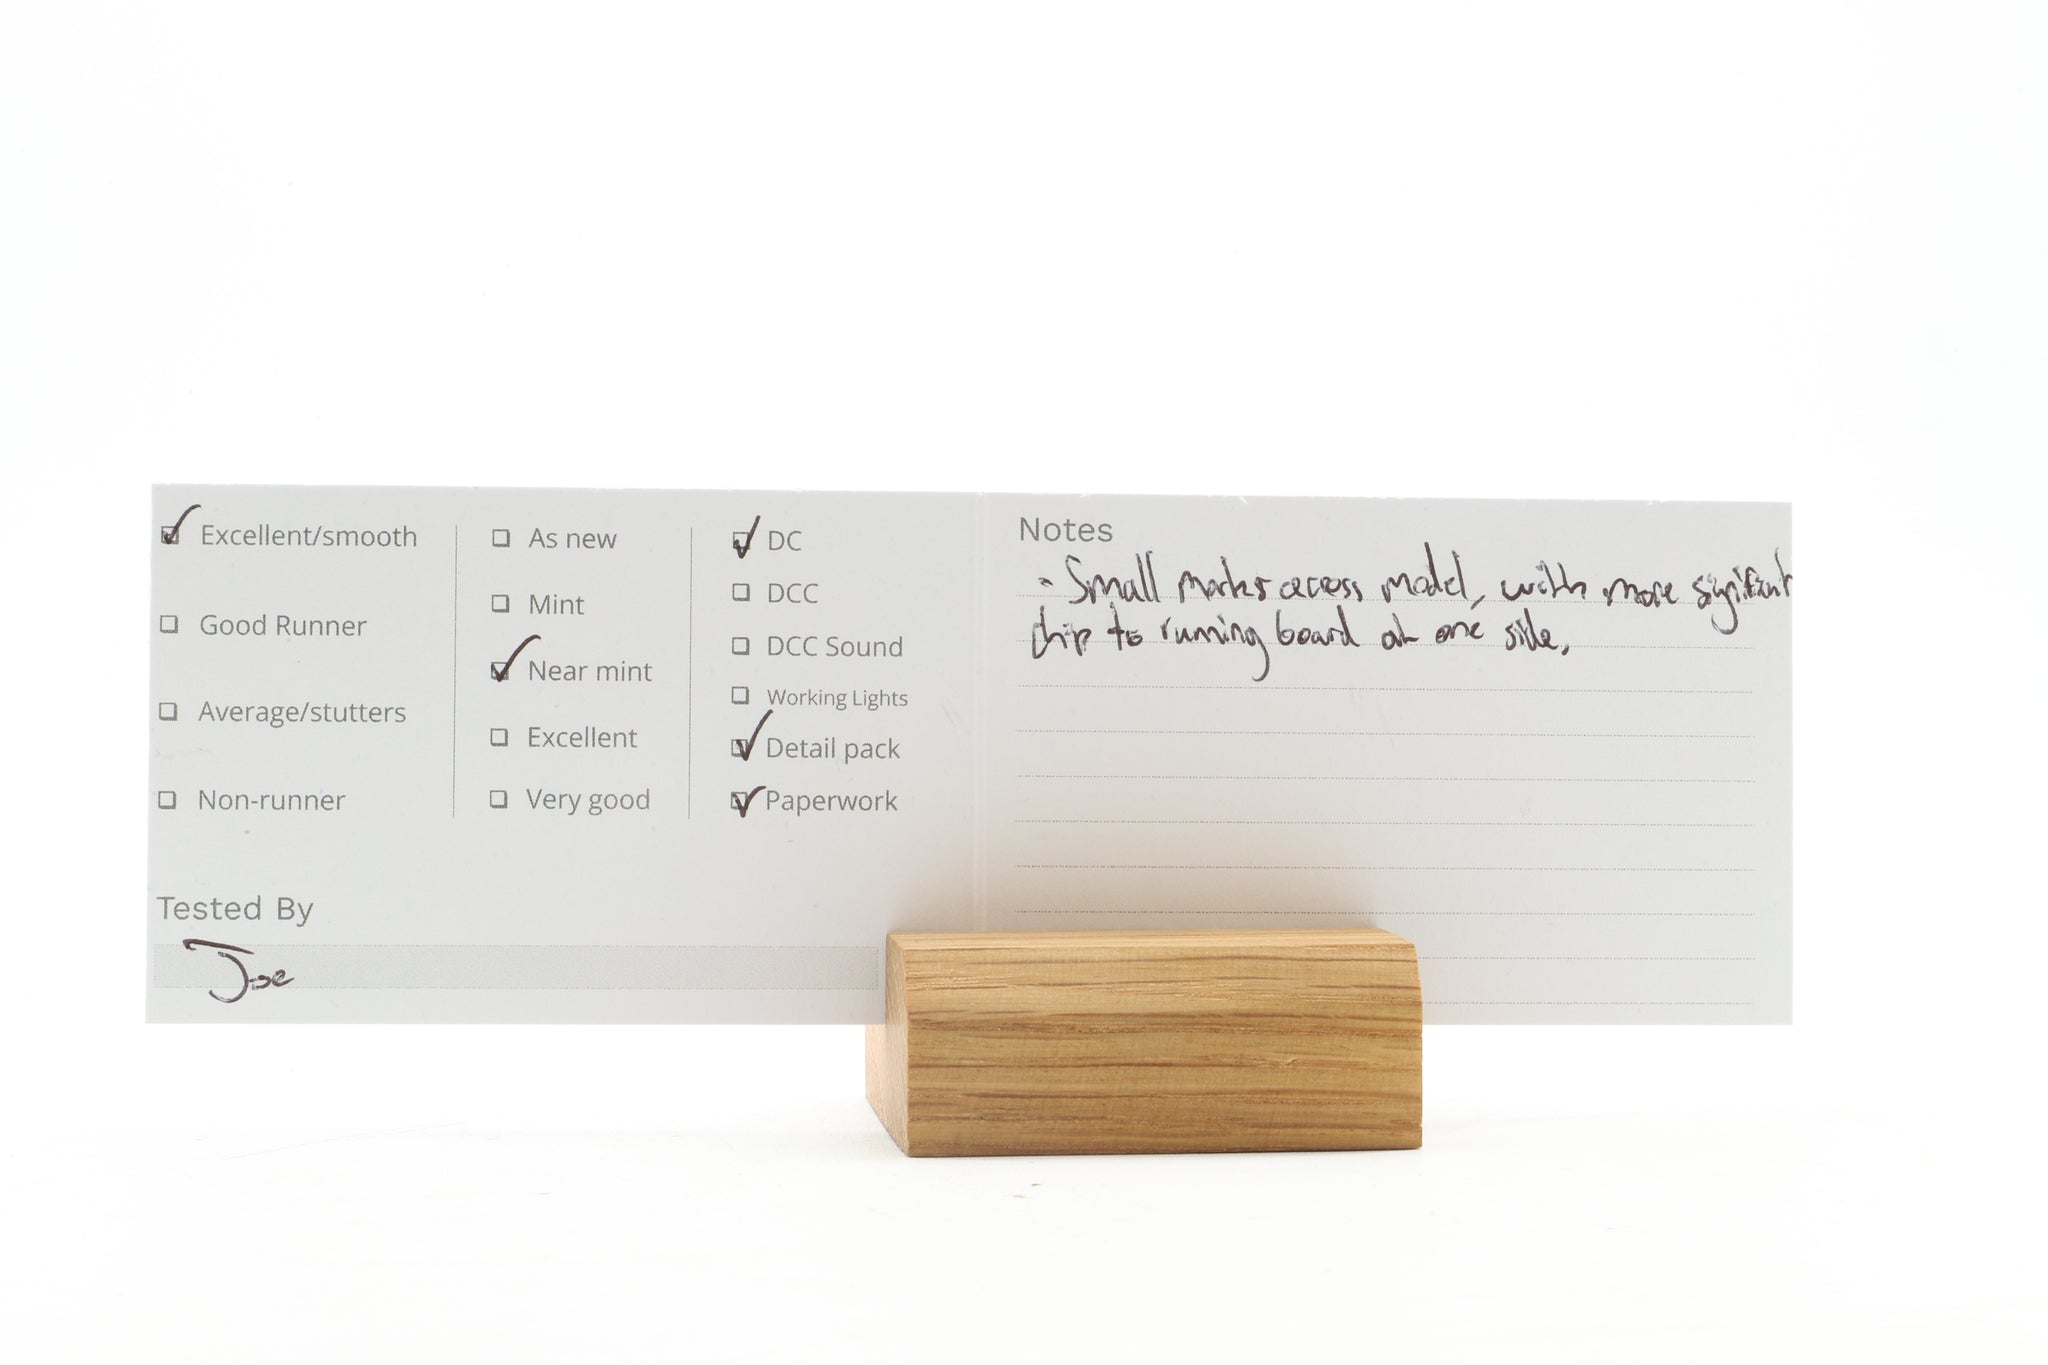 Excellent/smooth
Good Runner
Average/stutters
Non-runner
As new
Mint
Near mint
Excellent
Very good
DC
DCC
DCC Sound
Working Lights
Detail pack
Paperwork
Tested By
Joe
Notes
- Small marks across model, with more significant
chip to running board on one side.